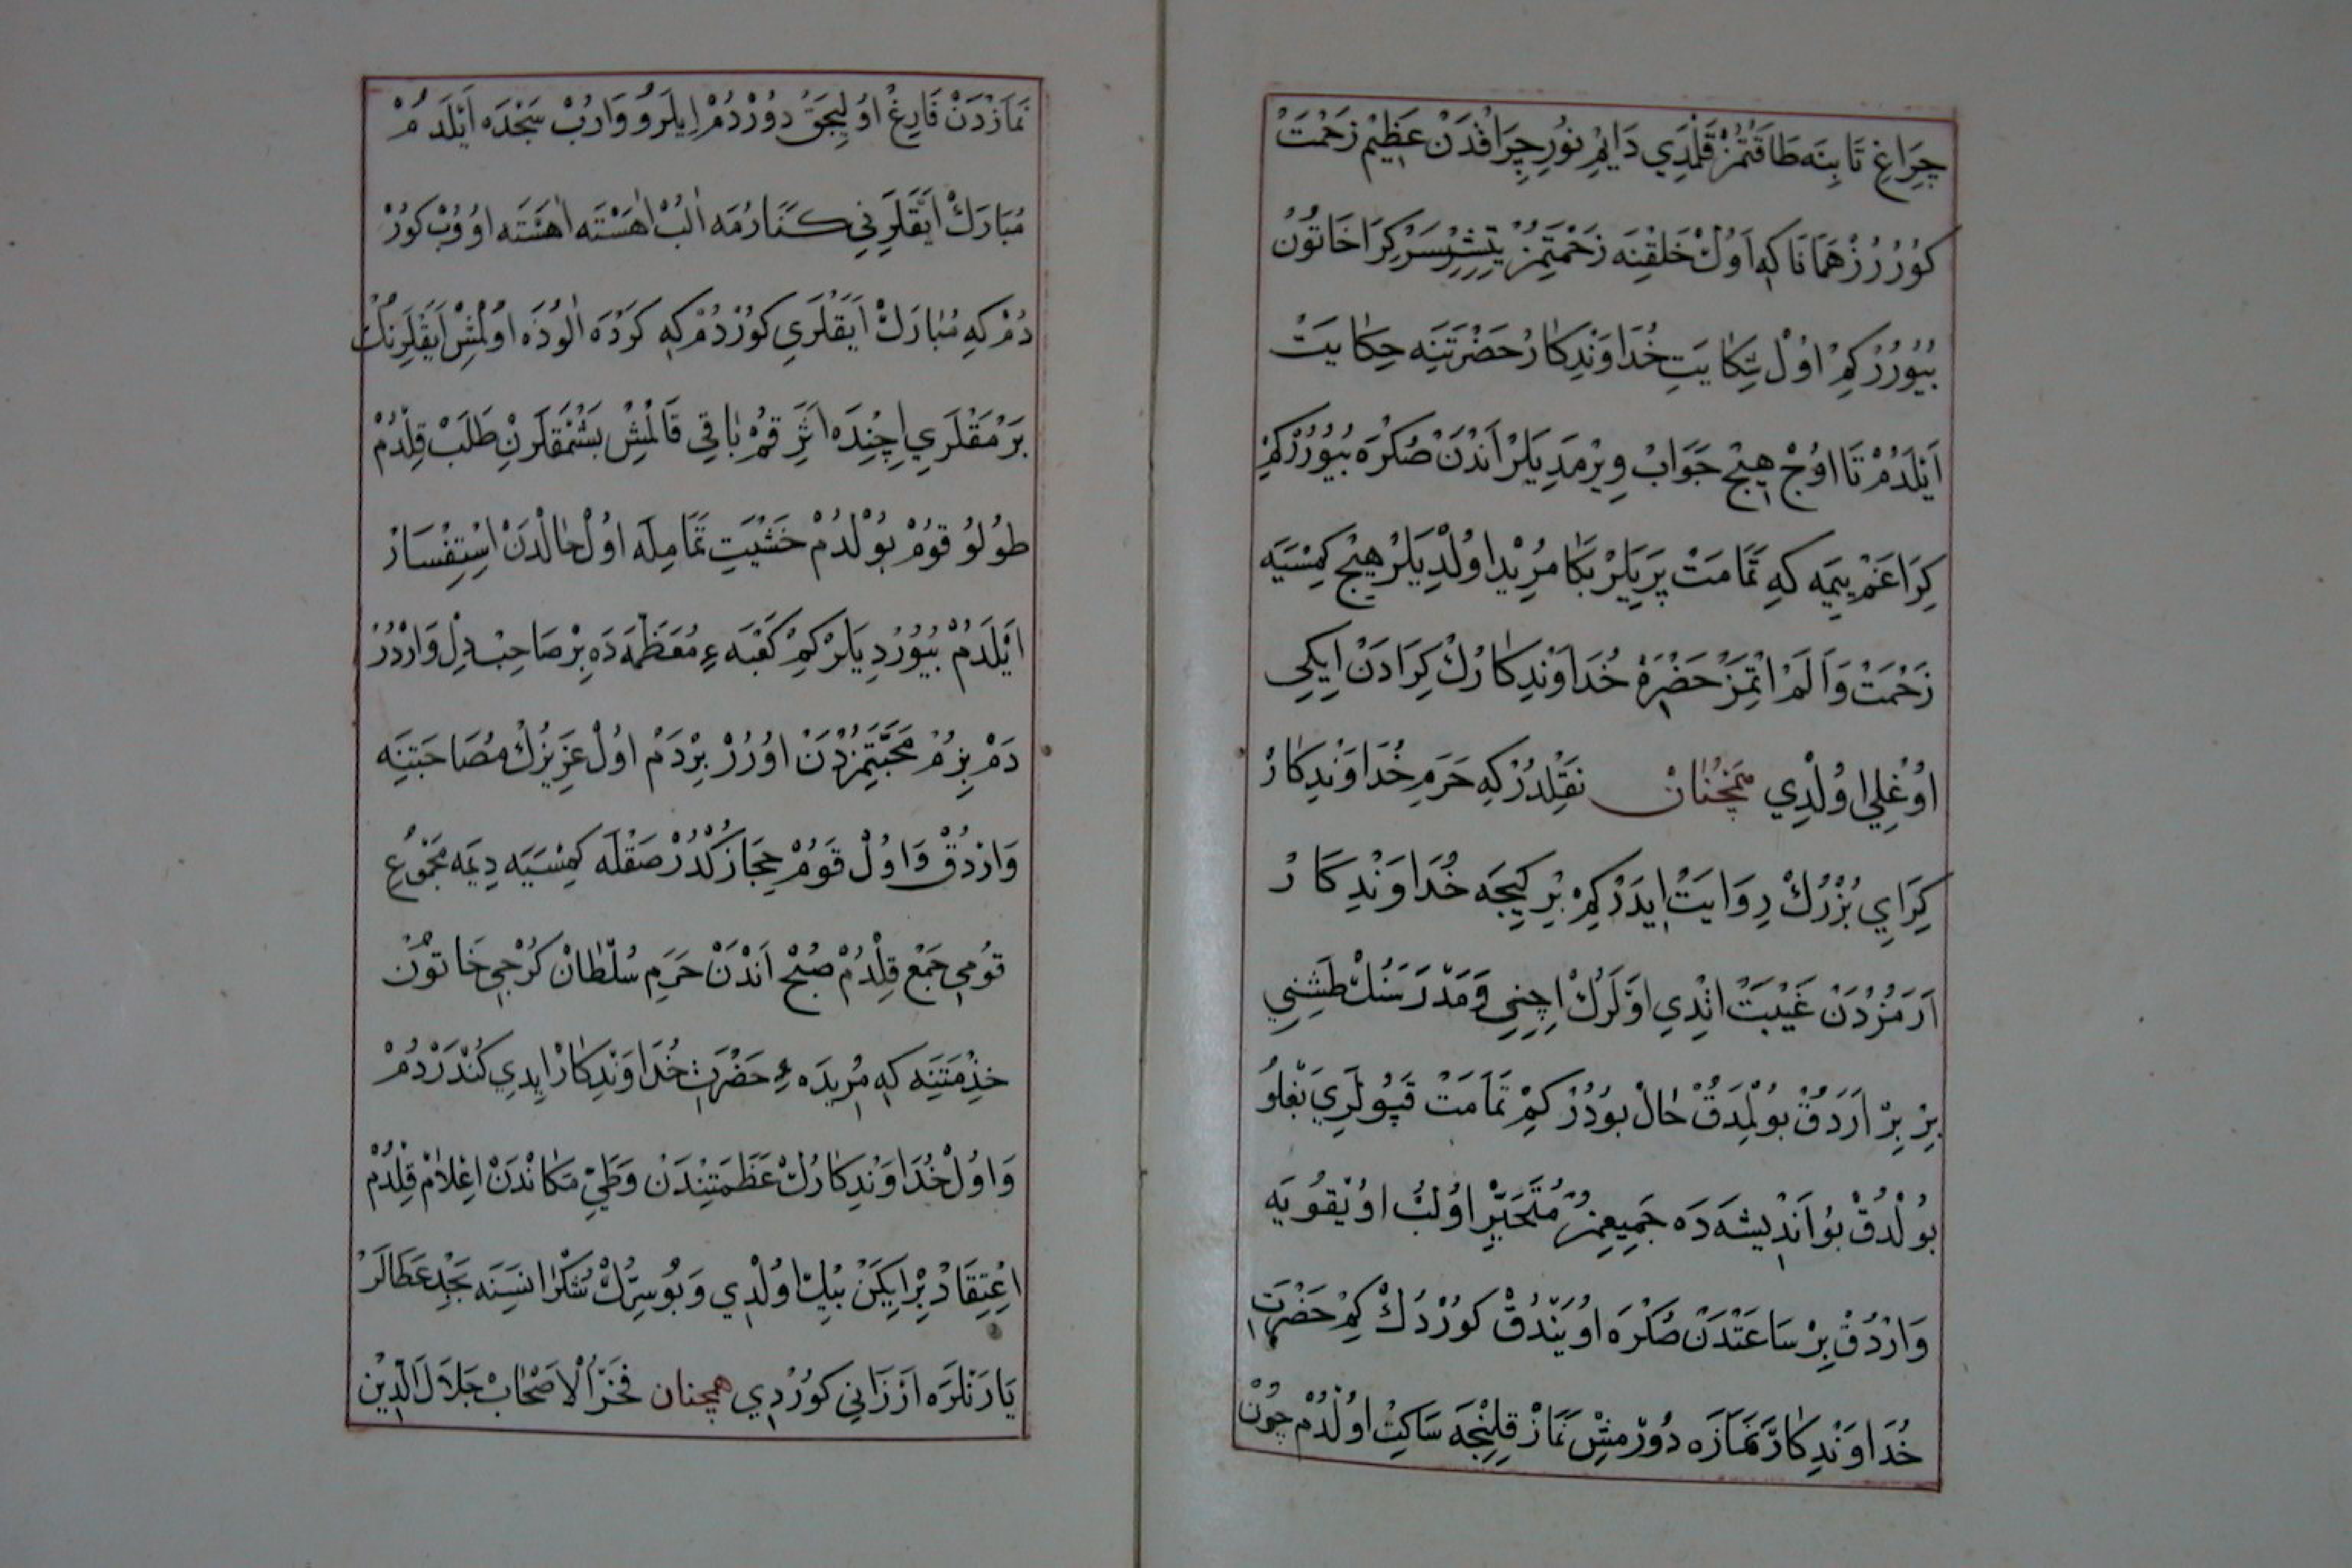 چِرَاغِ تَا بِنَه طَاقَتُمُزْ قَلْمَدِي دَايِمْ نُورِ چِرَاقْدَنْ عَظِيمْ زَحْمَتْ
كَورُرُزْ هَمَانَا كِه اَوُلْ خَلقِنَه زَحْمَتِمُزْ يَتِشِرْسَرْ كِرَا خَاتُونْ
بُيُورُرْ كِمْ اوُلْ شِكَايَتِ خُدَاوَنْدِكَارْ حَضْرَتِنَه حِكَايَتْ
اَيْلَدُمْ تَا اوُجْ هِيْچْ جَوَابْ وِيرْمَدِيلَرْ اَنْدَنْ صُكْرَه بُيُورُرْكِمْ
كِرَا غَمْ يِيمَه كِه تَمَامَتْ پَرِيلَرْ بَكَا مُرِيْد اوُلْدِيلَرْ هِيْچْ كِمْسَيَه
زَحْمَتْ وَاَلَمْ اتْمَزْ حَضْرَةْ خُدَاوَنْدِكَارُكْ كِرَادَنْ اِيكِي
اوُغْلِي اوُلْدِي هَمْچُنَانْ نَقْلِدُرْ كِه حَرَمِ خُدَاوَنْدِكَارْ
كِرَايِ بُزُرْكْ رِوَايَتْ اِيدَرْ كِمْ بِرْ كِيجَه خُدَاوَنْدِكَارْ
اَرَمُزْدَنْ غَيْبَتْ اتْدِي اوَلَرُكْ اِچِنِي وَمَدْرَسَنُكْ طَشِنِي
بِرْ بِرْ اَرَدُقْ بُولْمَدُقْ حَالْ بُودُرْ كِمْ تَمَامَتْ قَپُولَرِي بَغْلُو
بُولْدُقْ بُو اَنْدِيشَه دَه جَمِيعِمُزْ مُتَحَيِّرْ اوُلُبْ اوُيْقُويَه
وَارْدُقْ بِرْ سَاعَتْدَنْ صُكْرَه اوُيَنْدُقْ كُورْدُكْ كِمْ حَضْرَتِ
خُدَاوَنْدِكَارْ نَمَازَه دُورْمِشْ نَمَازْ قِلِنْجَه سَاكِتْ اوُلْدُمْ چُونْ
نَمَازْدَنْ فَارِغْ اوُلِيجَقْ دُورْدُمْ اِيلَرُو وَارُبْ سَجْدَه اَيْلَدُمْ
مُبَارَكْ اَيَقْلَرِنِي كَنَارُمَه اَلُبْ اَهَسْتَه اَهَسْتَه اوُوُبْ كُورْ
دُمْ كِه مُبَارَكْ اَيَقْلَرِي كُورْدُمْ كِه كَرْدَه اَلُودَه اوُلْمِشْ اَيَقْلَرِنُكْ
بَرْمَقْلَرِي اِچِنْدَه اَثَرِ قُمْ بَاقِي قَالْمِشْ بَشْمَقْلَرِنْ طَلَبْ قِلْدُمْ
طُولُو قُومْ بُولْدُمْ خَشْيَتِ تَمَامِلَه اوُلْ حَالْدَنْ اِسْتِفْسَارْ
اَيْلَدُمْ بُيُورْدِيلَرْ كِمْ كَعْبَهءِ مُعَظَّمَه دَه بِرْ صَاحِبْ دِلْ وَارْدُرْ
دَمْ بِزُمْ مَحَبَّتِمُزْدَنْ اوُرُرْ بِرْ دَمْ اوُلْ عَزِيزُكْ مُصَاحَبَتِنَه
وَارْدُقْ وَاوُلْ قُومْ حِجَازُكْدُرْ صَقْلَه كِمْسَيَه دِيمَه مَجْمُوعِ
قُومِي جَمْع قِلْدُمْ صُبْحْ اَنْدَنْ حَرَمِ سُلْطَانْ كُرْجِي خَاتُونْ
خِذْمَتِنَه كِه مُرِيدَهءِ حَضْرَتِ خُدَاوَنْدِكَارْ اِيدِي كُنْدَرْدُمْ
وَاوُلْ خُدَاوَنْدِكَارُكْ عَظَمَتِنْدَنْ وَطَيِّ مَكَانْدَنْ اِعْلَامْ قِلْدُمْ
اِعْتِقَادْ بِرْ اِيكَنْ بِيكْ اوُلْدِي وَبُو سِرُّكْ شُكْرَانَسِنَه بَجِدْ عَطَالَرْ
يَارَنْلَرَه اَرْزَانِي كُورْدِي همچنان فَخْرُ الْاَصْحَابْ جَلَالَ الدِّينْ